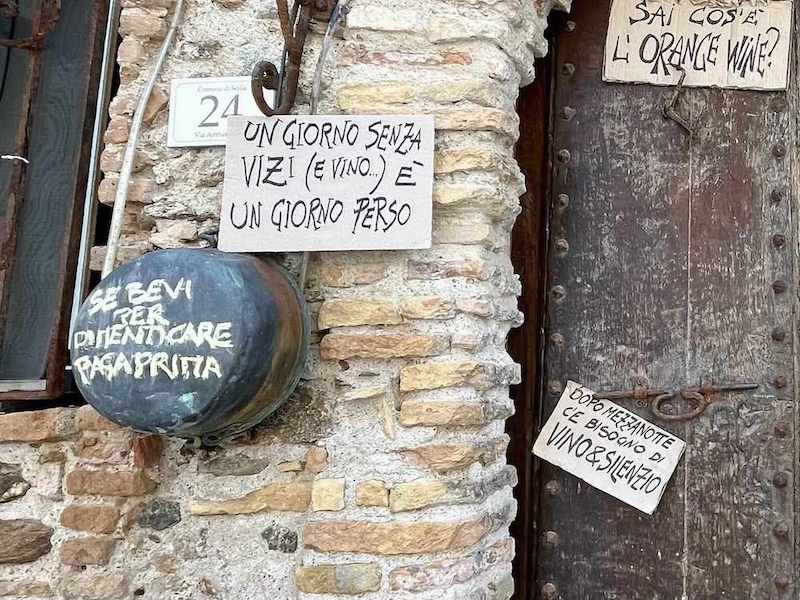 SAI COS'È
L'ORANGE WINE?
Comune di Scilla
24
UN GIORNO SENZA
VIZI (E VINO...) È
UN GIORNO PERSO
SE BEVI
PER
DIMENTICARE
PAGA PRIMA
DOPO MEZZANOTTE
CE BISOGNO DI
VINO&SILENZIO